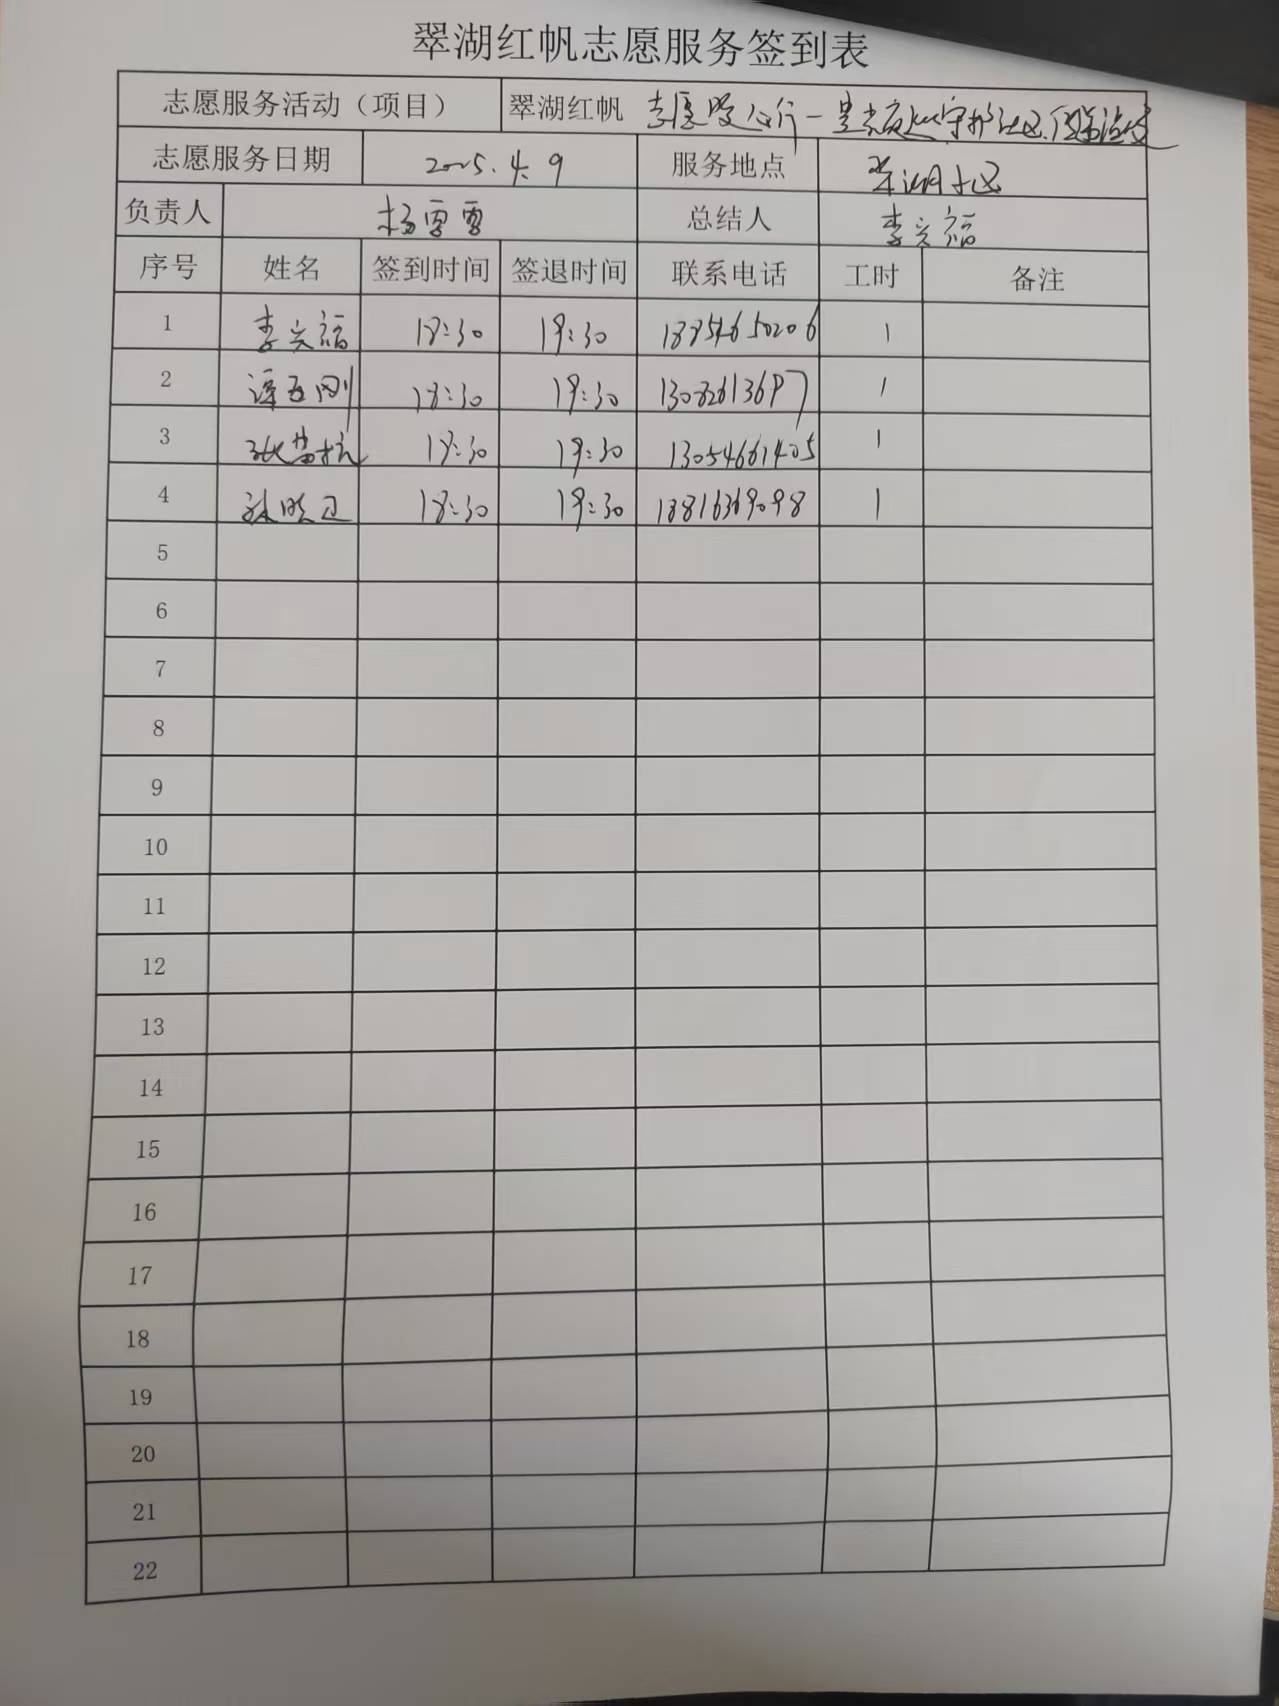 翠湖红帆志愿服务签到表
志愿服务活动（项目） 翠湖红帆 志愿
志愿服务日期 2025.4.9 服务地点 翠湖社区
负责人 杨雪雪 总结人 李兴福
序号 姓名 签到时间 签退时间 联系电话 工时 备注
1 李兴福 18:30 19:30 18854650206 1
2 刚 18:30 19:30 1
3 张 18:30 19:30 13054661405 1
4 孙晓卫 18:30 19:30 18816369098 1
5
6
7
8
9
10
11
12
13
14
15
16
17
18
19
20
21
22